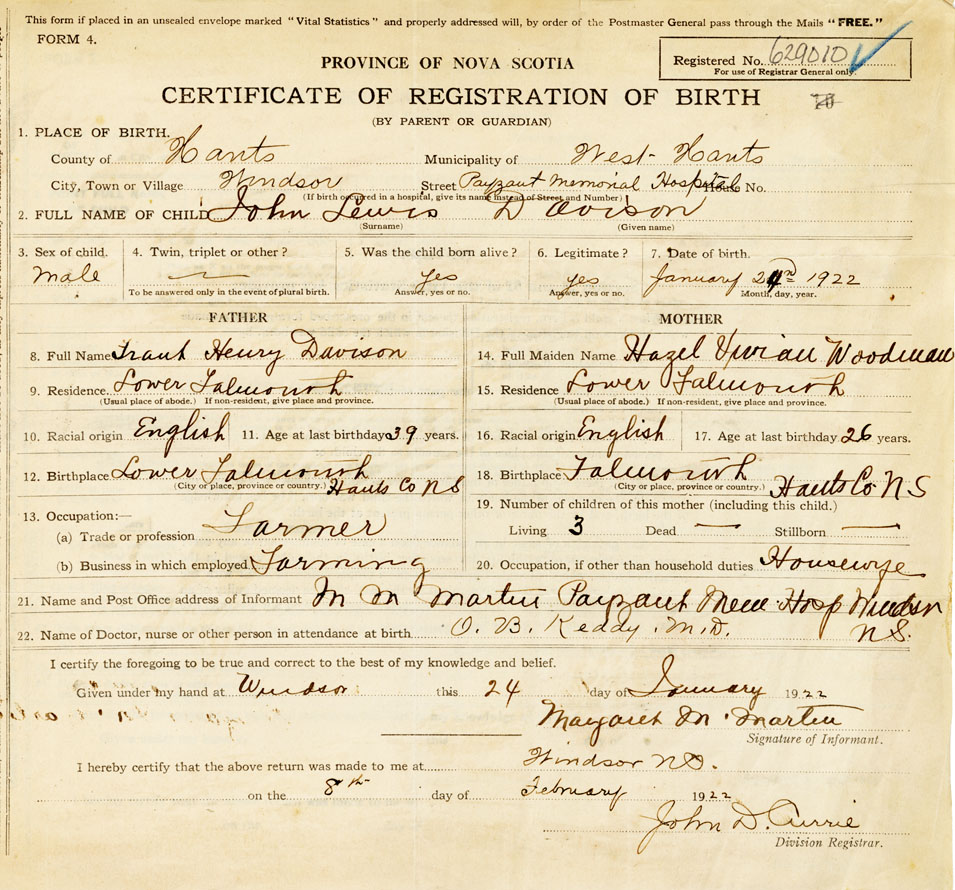 This form if placed in an unsealed envelope marked "Vital Statistics" and properly addressed will, by order of the Postmaster General pass through the Mails "FREE."
FORM 4.
Registered No. 629010
For use of Registrar General only.
PROVINCE OF NOVA SCOTIA
CERTIFICATE OF REGISTRATION OF BIRTH
(BY PARENT OR GUARDIAN)
1. PLACE OF BIRTH.
County of Hants Municipality of West-Hants
City, Town or Village Windsor Street Payzant Memorial Hospital House No.
(If birth occurred in a hospital, give its name instead of Street and Number)
2. FULL NAME OF CHILD John Lewis Davison
(Surname) (Given name)
3. Sex of child. 4. Twin, triplet or other? 5. Was the child born alive? 6. Legitimate? 7. Date of birth.
Male — yes yes January 1922
To be answered only in the event of plural birth. Answer, yes or no. Answer, yes or no. Month, day, year.
FATHER MOTHER
8. Full Name Henry Davison 14. Full Maiden Name Hazel Vivian Woodman
9. Residence Lower Falmouth 15. Residence Lower Falmouth
(Usual place of abode.) If non-resident, give place and province. (Usual place of abode.) If non-resident, give place and province.
10. Racial origin English 11. Age at last birthday 39 years. 16. Racial origin English 17. Age at last birthday 26 years.
12. Birthplace Lower Falmouth 18. Birthplace Falmouth
(City or place, province or country.) Hants Co N S (City or place, province or country.) Hants Co N S
13. Occupation:— 19. Number of children of this mother (including this child.)
(a) Trade or profession Farmer Living 3 Dead — Stillborn —
(b) Business in which employed Farming 20. Occupation, if other than household duties Housewife
21. Name and Post Office address of Informant M M Martin Payzant Mem Hosp Windsor
22. Name of Doctor, nurse or other person in attendance at birth O. B. Keddy. M.D. N.S.
I certify the foregoing to be true and correct to the best of my knowledge and belief.
Given under my hand at Windsor this 24 day of January 1922
Margaret M. Martin
Signature of Informant.
I hereby certify that the above return was made to me at Windsor N.S.
on the 8th day of February 1922
John D. Currie
Division Registrar.